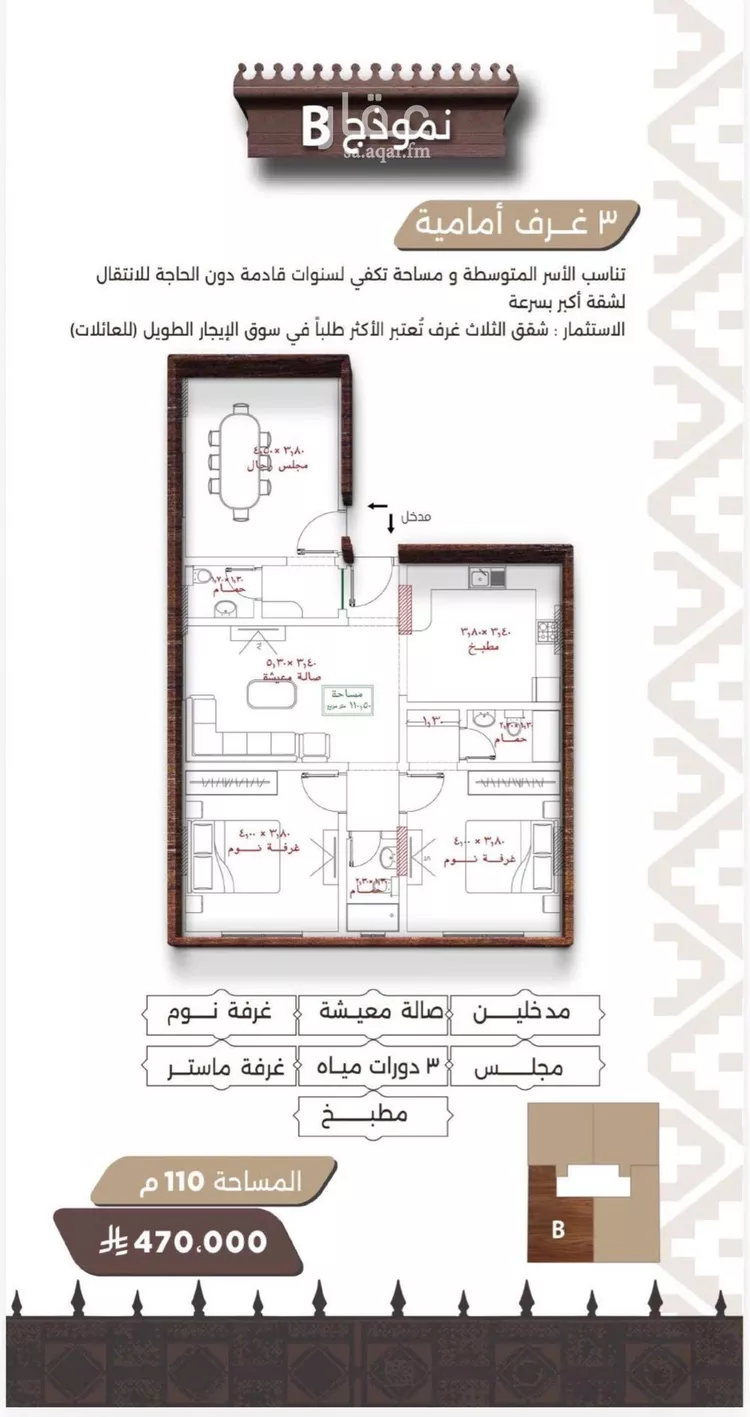 نموذج B
عقار
sa.aqar.fm
٣ غرف أمامية
تناسب الأسر المتوسطة و مساحة تكفي لسنوات قادمة دون الحاجة للانتقال
لشقة أكبر بسرعة
الاستثمار : شقق الثلاث غرف تُعتبر الأكثر طلباً في سوق الإيجار الطويل (للعائلات)
٣,٨٠ × ٤,٥٠
مجلس رجال
مدخل
حمام
٣,٤٠ × ٣,٨٠
مطبخ
٣,٤٠ × ٥,٣٠
صالة معيشة
مساحة
١١٠,٥٠ متر مربع
١,٣٠
حمام
٣,٨٠ × ٤,٠٠
غرفة نوم
٣,٨٠ × ٤,٠٠
غرفة نوم
حمام
مدخلين
صالة معيشة
غرفة نوم
مجلس
٣ دورات مياه
غرفة ماستر
مطبخ
المساحة 110 م
470،000
B